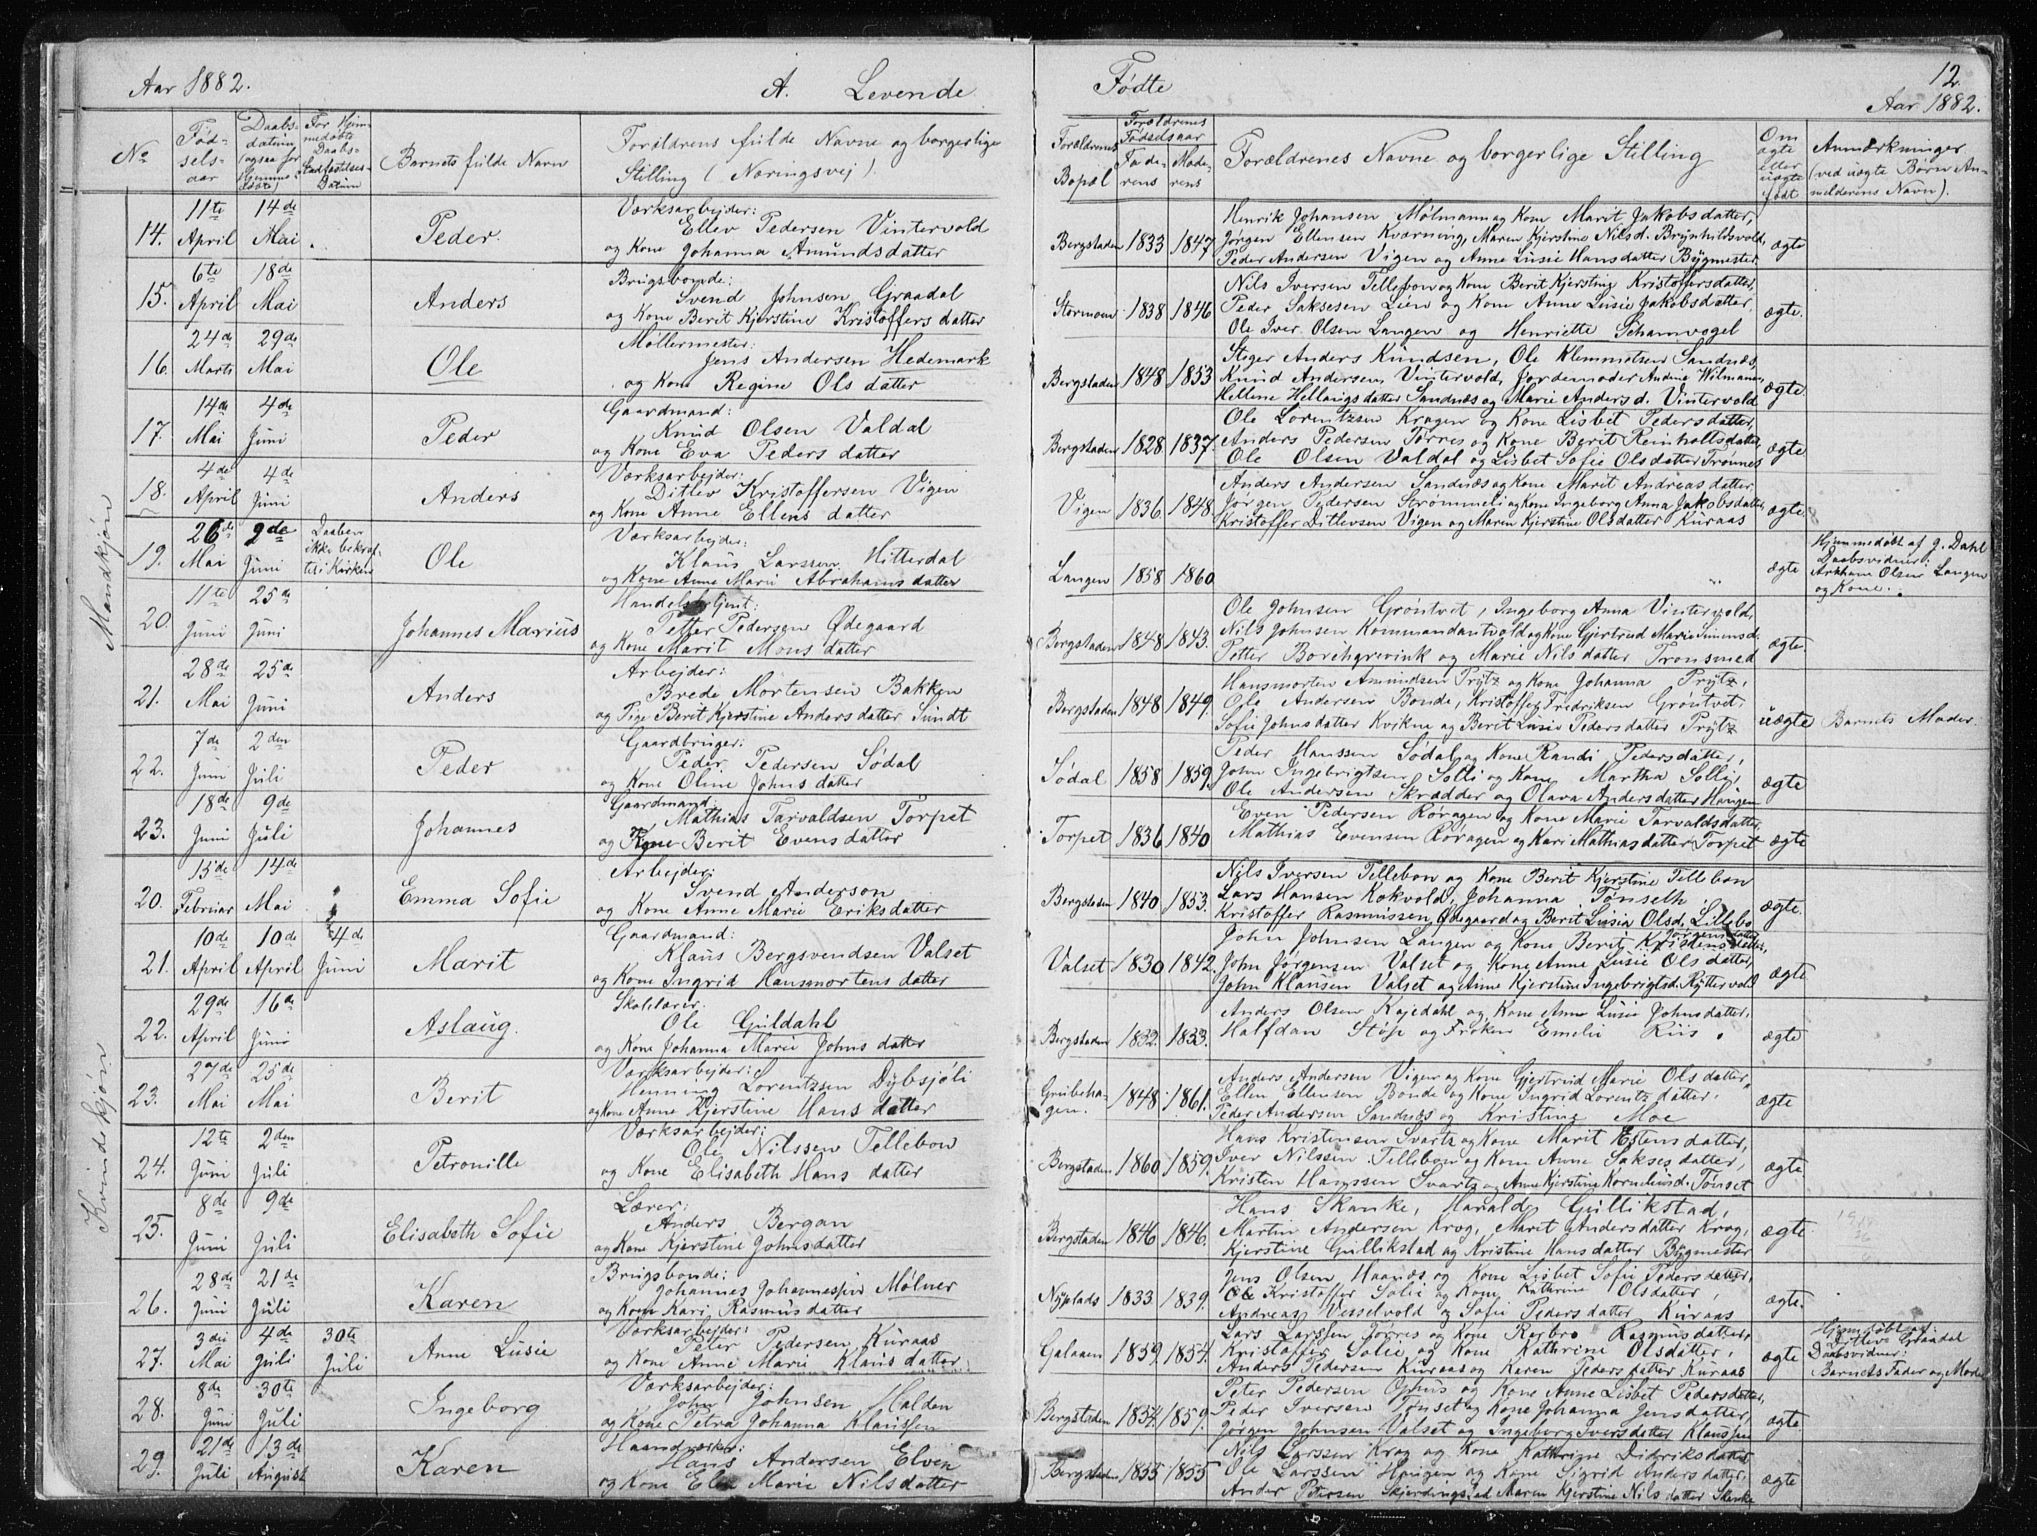 Aar 1882.
A. Levende
Fødte
12
Aar 1882.
No
Fød-
sels-
aar
Daabs-
datum
(ogsaa for
Hjemme-
døbte)
For Hjem-
medøbte
Daabs-
Stadfæstelses-
Datum
Barnets fulde Navn
Forældrenes fulde Navne og borgerlige
Stilling (Næringsvej).
Forældrenes
Bopæl
Forældrenes
Fødselsaar
Fade-
rens
Mode-
rens
Forældrenes Navne og borgerlige Stilling
Om
ægte
eller
uægte
født
Anmærkninger
(ved uægte Børn An-
melderens Navn).
Mandkjøn
14. 11te April 14de Mai Peder.
Værksarbejder:
Ellev Pedersen Vintervold
og Kone Johanna Amundsdatter
Bergstaden 1833 1847
Henrik Johansen Mølmann og Kone Marit Jakobsdatter,
Jørgen Ellensen Kværneng, Maren Kjerstine Nilsd. Brynhildsvold,
Peder Andersen Vigen og Anne Lusie Hansdatter Bygmester
ægte
15. 6te April 18de Mai Anders
Brugsbonde:
Svend Johnsen Graadal
og Kone Berit Kjerstine Kristoffersdatter
Stormoen 1838 1846
Nils Iversen Tellebon og Kone Berit Kjerstine Kristoffersdatter,
Peder Saksesen Lien og Kone Anne Lusie Jakobsdatter
Ole Iver Olsen Langen og Henriette Schanvogel
ægte.
16. 24de Marts 29de Mai Ole
Møllermester:
Jens Andersen Hedemark
og Kone Regine Olsdatter
Bergstaden 1848 1853
Stiger Anders Knudsen, Ole Klemmetsen Sandnæs,
Knud Andersen Vintervold, Jordemoder Andrea Wilmann,
Hellene Hellingsdatter Sandnæs og Marie Andersd. Vintervold
ægte
17. 14de Mai 4de Juni Peder
Gaardmand:
Knud Olsen Valdal
og Kone Eva Pedersdatter
Bergstaden 1828 1837.
Ole Lorentzsen Kragen og Kone Lisbet Pedersdatter,
Anders Pedersen Tørres og Kone Berit Reinholtsdatter,
Ole Olsen Valdal og Lisbet Sofie Olsdatter Trønnes
ægte
18. 4de April 4de Juni Anders
Værksarbejder:
Ditlev Kristoffersen Vigen
og Kone Anne Ellensdatter
Vigen 1836 1848
Anders Andersen Sandnæs og Kone Marit Andreasdatter
Jørgen Pedersen Strømmeli og Kone Ingeborg Anna Jakobsdatter,
Kristoffer Ditlevsen Vigen og Maren Kjerstine Olsdatter Kuraas
ægte
19. 26de Mai 9de Juni
Daaben
ikke bekræf-
tet i Kirken
Ole
Værksarbejder:
Klaus Larssen Hitterdal
og Kone Anne Marie Abrahamsdatter
Langen 1858 1860
ægte
Hjemmedøbt af J. Dahl
Daabsvidner:
Olsen Langen
og Kone.
20. 11te Juni 25de Juni Johannes Marius
Handelsbetjent:
Petter Pedersen Ødegaard
og Kone Marit Monsdatter
Bergstaden 1848 1843.
Ole Johnsen Grøntvet, Ingeborg Anna Vintervold,
Nils Johnsen Kommandantvold og Kone Gjertrud Marie Simensd.
Petter Borchgrevink og Marie Nilsdatter Tronsmed
ægte
21. 28de Mai 25de Juni Anders
Arbejder:
Brede Mortensen Bakken
og Pige Berit Kjerstine Andersdatter Sundt
Bergstaden 1848 1849.
Hansmorten Amundsen Prytz og Kone Johanna Prytz,
Ole Andersen Bonde, Kristoffer Fredriksen Grøntvet,
Sofie Johnsdatter Kvikne og Berit Lusie Pedersdatter Prytz
uægte
Barnets Moder.
22. 7de Juni 2den Juli Peder
Gaardbruger:
Peder Pedersen Sødal
og Kone Oline Johnsdatter
Sødal 1858 1859.
Peder Hanssen Sødal og Kone Randi Pedersdatter,
John Ingebrigtsen Solli og Kone Martha Solli,
Ole Andersen Skrædder og Olava Andersdatter Haugen
ægte
23. 18de Juni 9de Juli Johannes
Gaardmand:
Mathias Tarvaldsen Torpet
og Kone Berit Evensdatter
Torpet 1836 1840
Even Pedersen Røragen og Kone Marie Tarvaldsdatter,
Mathias Evensen Røragen og Kari Mathiasdatter Torpet
ægte
Kvindekjøn
20. 15de Februar 14de Mai Emma Sofie
Arbejder:
Svend Anderson
og Kone Anne Marie Eriksdatter
Bergstaden 1840 1853.
Nils Iversen Tellebon og Kone Berit Kjerstine Tellebon
Lars Hansen Kokvold, Johanna Tønseth
Kristoffer Rasmussen Ødegaard og Berit Lusia Olsd. Lillebo
ægte
21. 10de April 10de April 4de Juni Marit
Gaardmand:
Klaus Bergsvendsen Valset
og Kone Ingrid Hansmortensdatter
Valset 1830 1842.
John Johnsen Langen og Kone Berit Jørgensdatter
John Jørgensen Valset og Kone Anne Lusie Olsdatter,
John Klausen Valset og Anne Kjerstine Ingebrigtsd. Ryttervold
ægte
22. 29de April 16de Juni Aslaug.
Skolelærer:
Ole Guldahl
og Kone Johanna Marie Johnsdatter
Bergstaden 1832. 1833.
Anders Olsen Kojedahl og Kone Anne Lusie Johnsdatter,
Halfdan Støp og Frøken Emelie Riis.
ægte
23. 27de Mai 25de Mai Berit
Værksarbejder:
Henning Lorentzsen Dybsjøli
og Kone Anne Kjerstine Hansdatter
Grubeha-
gen. 1848 1861.
Anders Andersen Vigen og Kone Gjertrud Marie Olsdatter,
Ellen Ellensen Bonde og Kone Ingrid Lorentzdatter,
Peder Andersen Sandnæs og Kristine Moe
ægte
24. 12te Juni 2den Juli Petronille
Værksarbejder:
Ole Nilssen Tellebon
og Kone Elisabeth Hansdatter
Bergstaden 1860 1859.
Hans Kristensen Svartz og Kone Marit Estensdatter,
Iver Nilssen Tellebon og Kone Anne Saksesdatter,
Kristen Hanssen Svartz og Anne Kjerstine Korneliusd. Tønset
ægte
25. 8de Juni 9de Juli Elisabeth Sofie
Lærer:
Anders Bergan
og Kone Kjerstine Johnsdatter
Bergstaden 1846 1846.
Hans Skanke, Harald Gullikstad,
Martin Andersen Krog, Marit Andersdatter Krog,
Kjerstine Gullikstad og Kristine Hansdatter Bygmester
ægte
26. 28de Juni 21de Juli Karen
Brugsbonde:
Johannes Johannessen Mølner
og Kone Kari Rasmusdatter
Nyplads 1833 1839.
Jens Olsen Haanæs og Kone Lisbet Sofie Pedersdatter,
Ole Kristoffer Solie og Kone Kathrine Olsdatter,
Andreas Vesselvold og Sofie Pedersdatter Kuraas
ægte.
27. 3die Mai 4de Juli 30te Juli Anne Lusie
Værksarbejder:
Peter Pedersen Kuraas
og Kone Anne Marie Klausdatter
Galaaen 1859. 1854.
Lars Larssen Tørres og Kone Barbro Rasmusdatter,
Kristoffer Solie og Kone Kathrine Olsdatter,
Anders Pedersen Kuraas og Karen Pedersdatter Kuraas
ægte
Hjemdøbt af:
Ditlev Graadal
Daabsvidner:
Barnets Fader og Moder
28. 8de Juni 30te Juli Ingeborg
Værksarbejder:
John Johnsen Halden
og Kone Petra Johanna Klaussen
Bergstaden 1854. 1859.
Peter Pedersen Ophus og Kone Anne Lisbet Pedersdatter,
Peder Iversen Tønset og Kone Johanna Jensdatter,
Jørgen Johnsen Valset og Ingeborg Iversdatter Klaussen
ægte
29. 21de Juli 13de August Karen
Haandværker:
Hans Andersen Elven
og Kone Marie Nilsdatter
Bergstaden 1855 1855
Nils Larssen Krog og Kone Kathrine Didriksdatter
Ole Larssen Haugen og Kone Sigrid Andersdatter,
Ander Petersen og Maren Kjerstine Nilsdatter Skanke
ægte